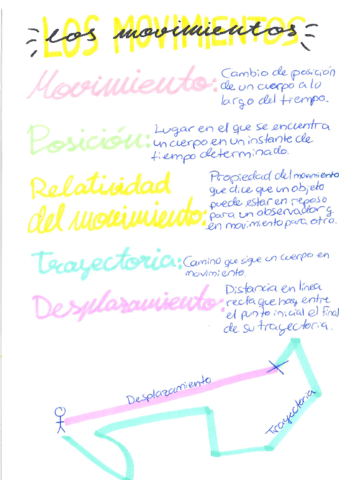 LOS MOVIMIENTOS
los movimientos
Movimiento: Cambio de posición
de un cuerpo a lo
largo del tiempo.
Posición: Lugar en el que se encuentra
un cuerpo en un instante de
tiempo determinado.
Relatividad
del movimiento: Propiedad del movimiento
que dice que un objeto
puede estar en reposo
para un observador y
en movimiento para otro.
Trayectoria: Camino que sigue un cuerpo en
movimiento.
Desplazamiento: Distancia en línea
recta que hay entre
el punto inicial el final
de su trayectoria.
Desplazamiento
Trayectoria